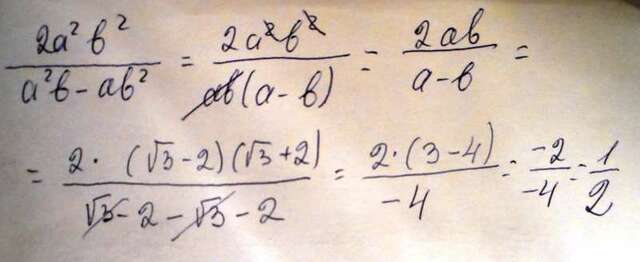 2a²b² / a²b − ab² = 2a²b² / ab(a − b) = 2ab / a − b =
= 2 · (√3 − 2)(√3 + 2) / √3 − 2 − √3 − 2 = 2 · (3 − 4) / −4 = −2 / −4 = 1 / 2